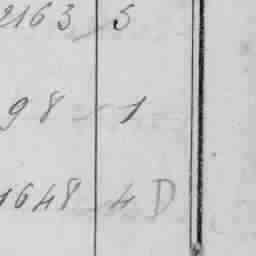 2163 5
98 1
1648 4 D